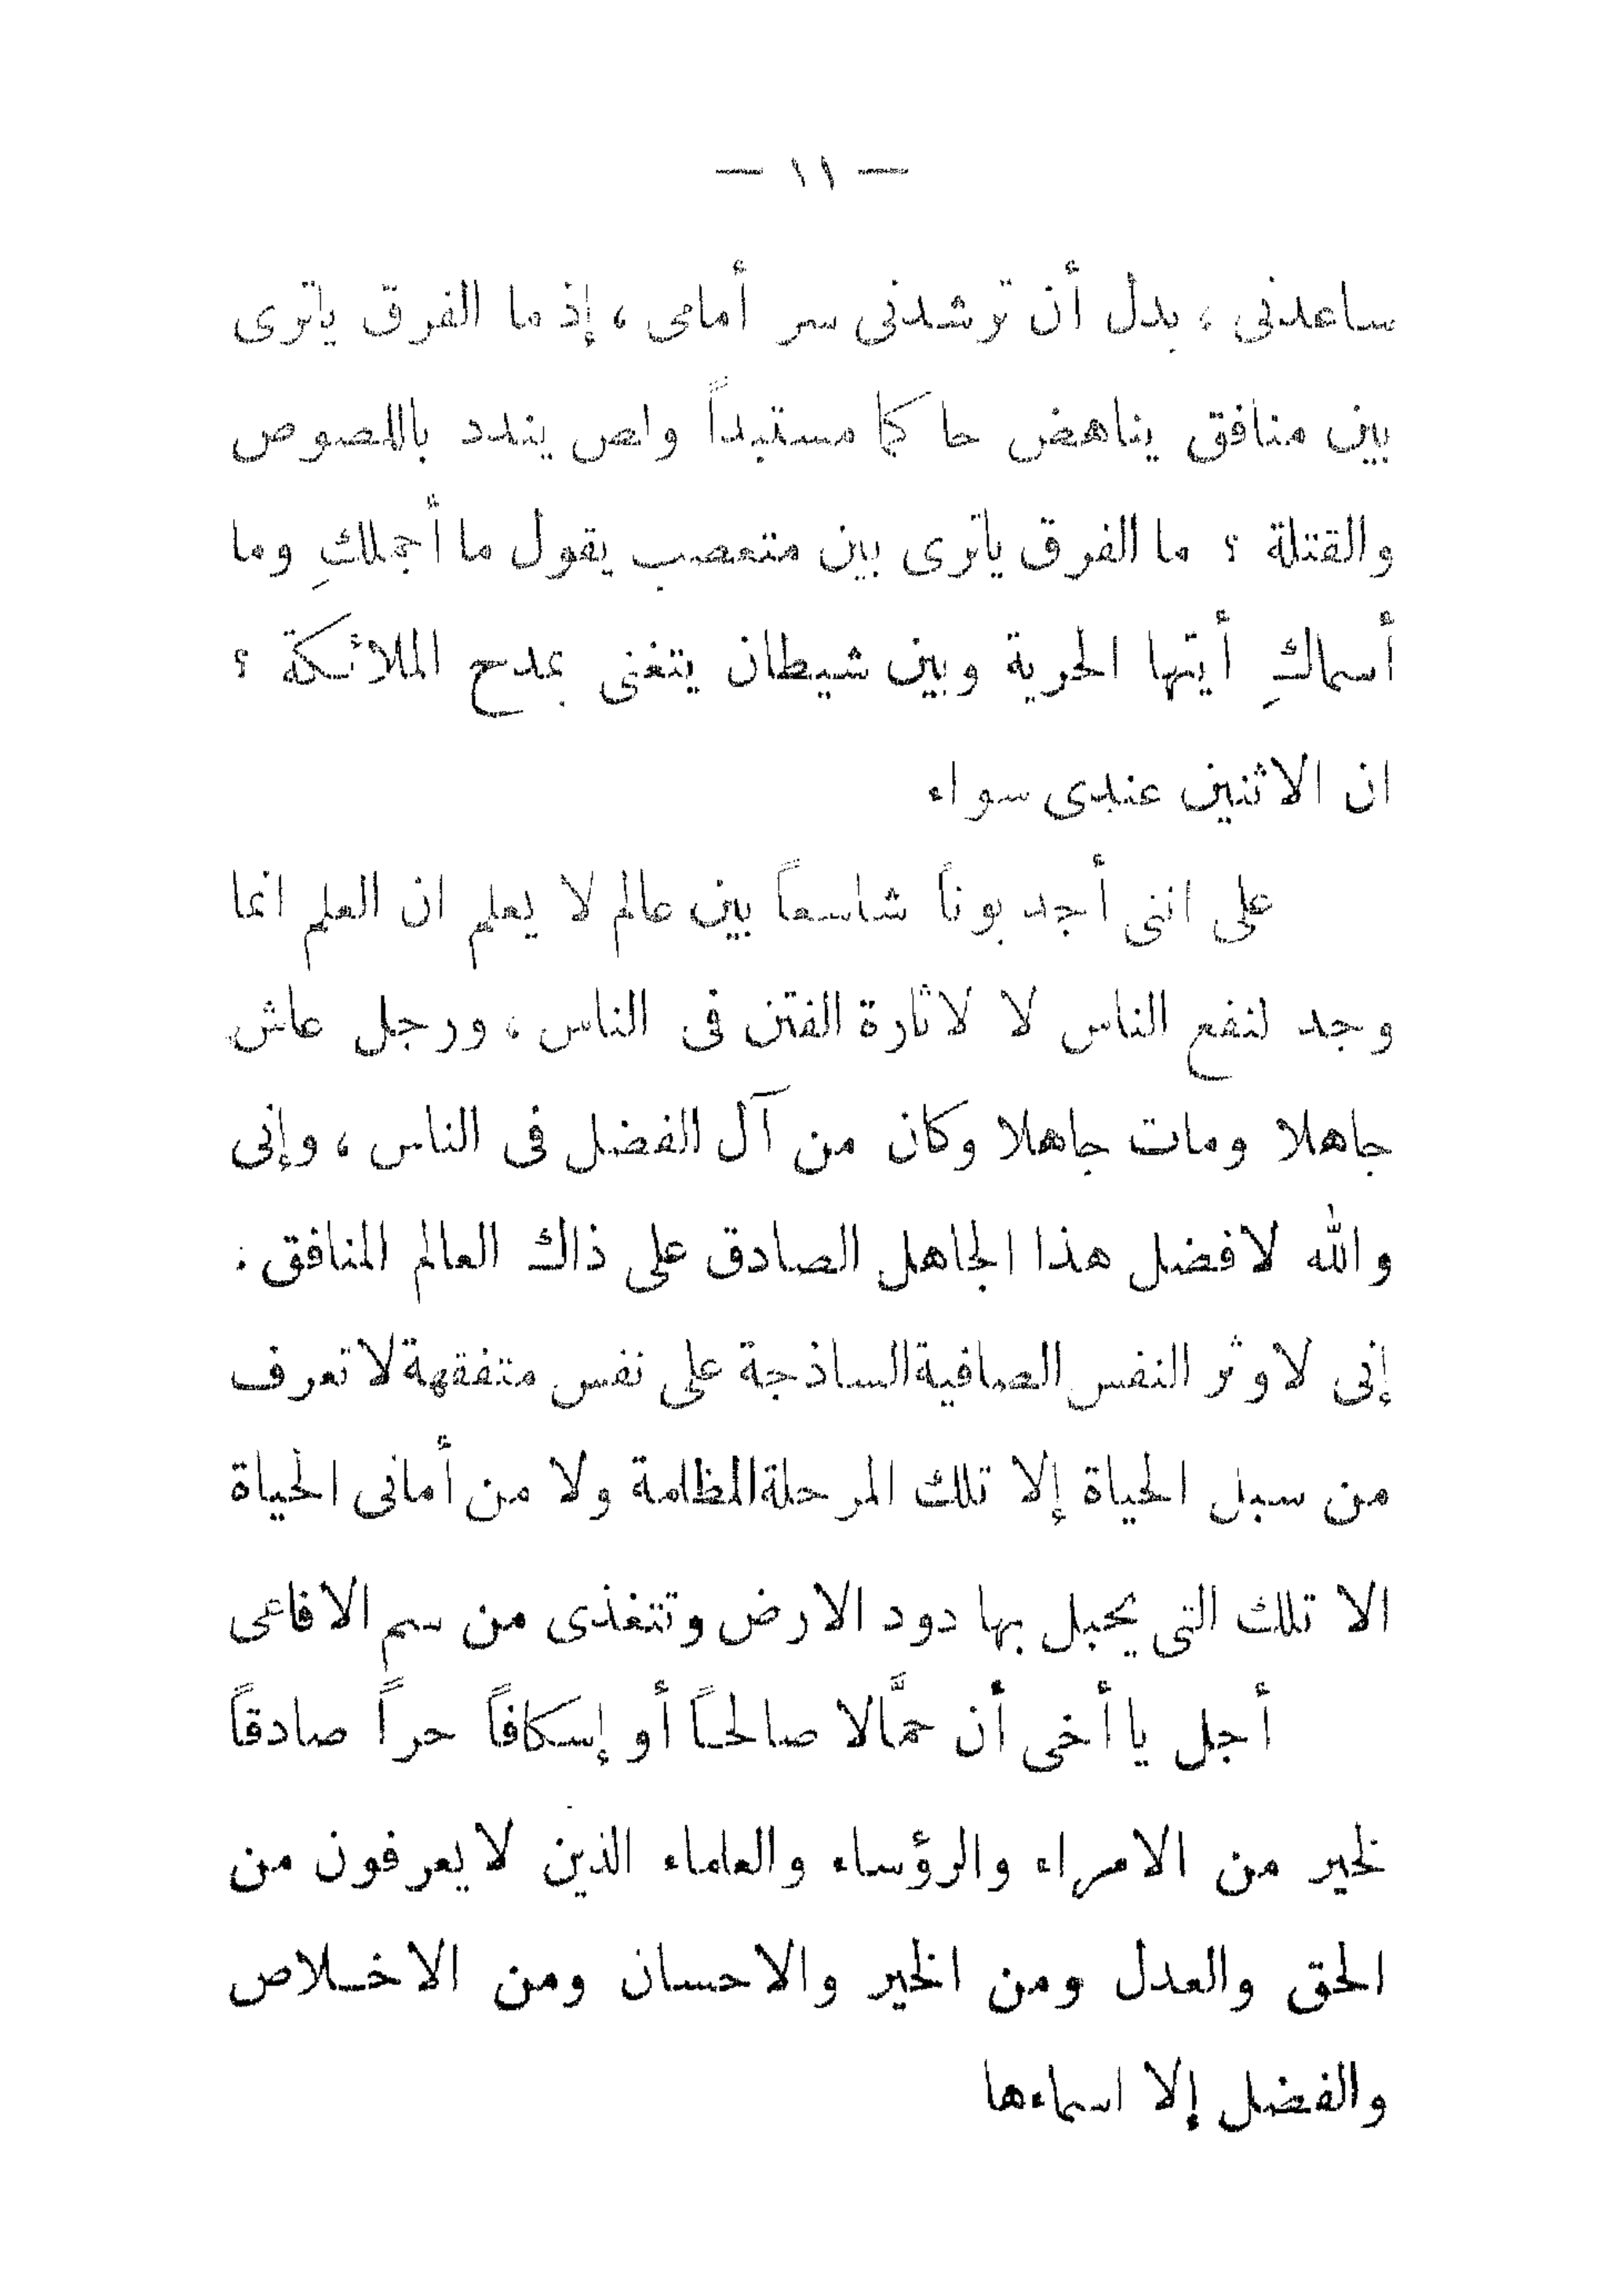 — ١١ —
ساعدنى ، بدل أن ترشدنى سر أمامى ، إذ ما الفرق ياترى
بين منافق يناهض حاكما مستبداً ولص يندد باللصوص
والقتلة ؟ ما الفرق ياترى بين متعصب يقول ما أجملكِ وما
أسماكِ أيتها الحرية وبين شيطان يتغنى بمدح الملائكة ؟
ان الاثنين عندى سواء
على اننى أجد بوناً شاسعاً بين عالم لا يعلم ان العلم انما
وجد لنفع الناس لا لاثارة الفتن فى الناس ، ورجل عاش
جاهلا ومات جاهلا وكان من آل الفضل فى الناس ، وإنى
والله لافضل هذا الجاهل الصادق على ذاك العالم المنافق .
إنى لاوثر النفس الصافية الساذجة على نفس متفقهة لا تعرف
من سبل الحياة إلا تلك المرحلة المظلمة ولا من أمانى الحياة
الا تلك التى يحبل بها دود الارض وتتغذى من سم الافاعى
أجل يا أخى أن حمَّالا صالحاً أو إسكافاً حراً صادقاً
لخير من الامراء والرؤساء والعلماء الذين لا يعرفون من
الحق والعدل ومن الخير والاحسان ومن الاخـلاص
والفضل إلا اسماءها